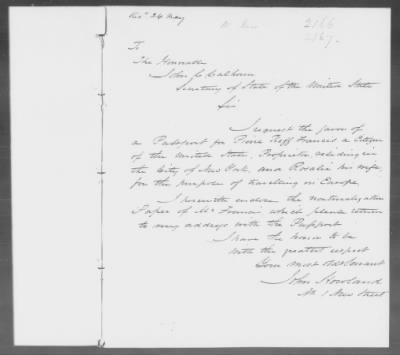 Recd 24 May
2166
2167.
To
The Honorable
John C Calhoun
Secretary of State of the United States
Sir
I request the favor of
a Passport for Pierre Francis a Citizen
of the United States, Proprietor, residing in
the City of New York, and Rosalie his wife,
for the purpose of travelling in Europe.
I herewith enclose the naturalization
Paper of Mr which please return
to my address with the Passport
I have the honor to be
With the greatest respect
Your most obdt Servant
John Howland
No 1 New Street